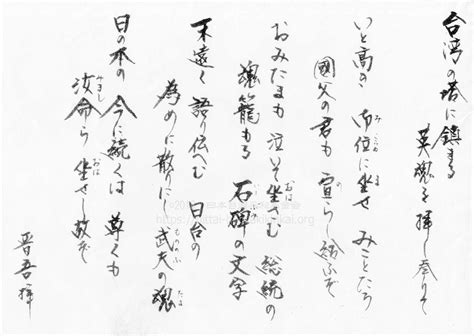 台湾の塔に鎮まる
英魂を拝し参りて
いと高き 御位に坐せ みことたち
國父の君も 宣らし給ふぞ
おみたまも 泣いそ坐さむ 総統の
魂籠もる 石碑の文字
末遠く 語り伝へむ 日台の
為めに散りにし 武夫の魂
日の本の 今に続くは 尊くも
汝命ら 坐せし故ぞ
晋吾 拝